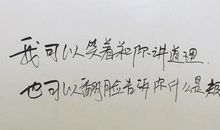 我可以笑着和你讲道理
也可以翻脸告诉你什么是